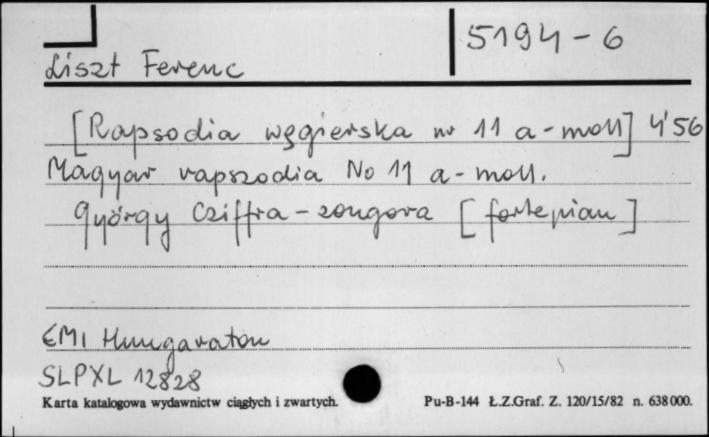 5194-6
Liszt Ferenc
[Rapsodia węgierska nr 11 a-moll] 4'56
Magyar rapszodia No 11 a-moll.
György Cziffra - zongora [fortepian]
EMI Hungaraton
SLPXL 12828
Karta katalogowa wydawnictw ciągłych i zwartych. Pu-B-144 Ł.Z.Graf. Z. 120/15/82 n. 638 000.